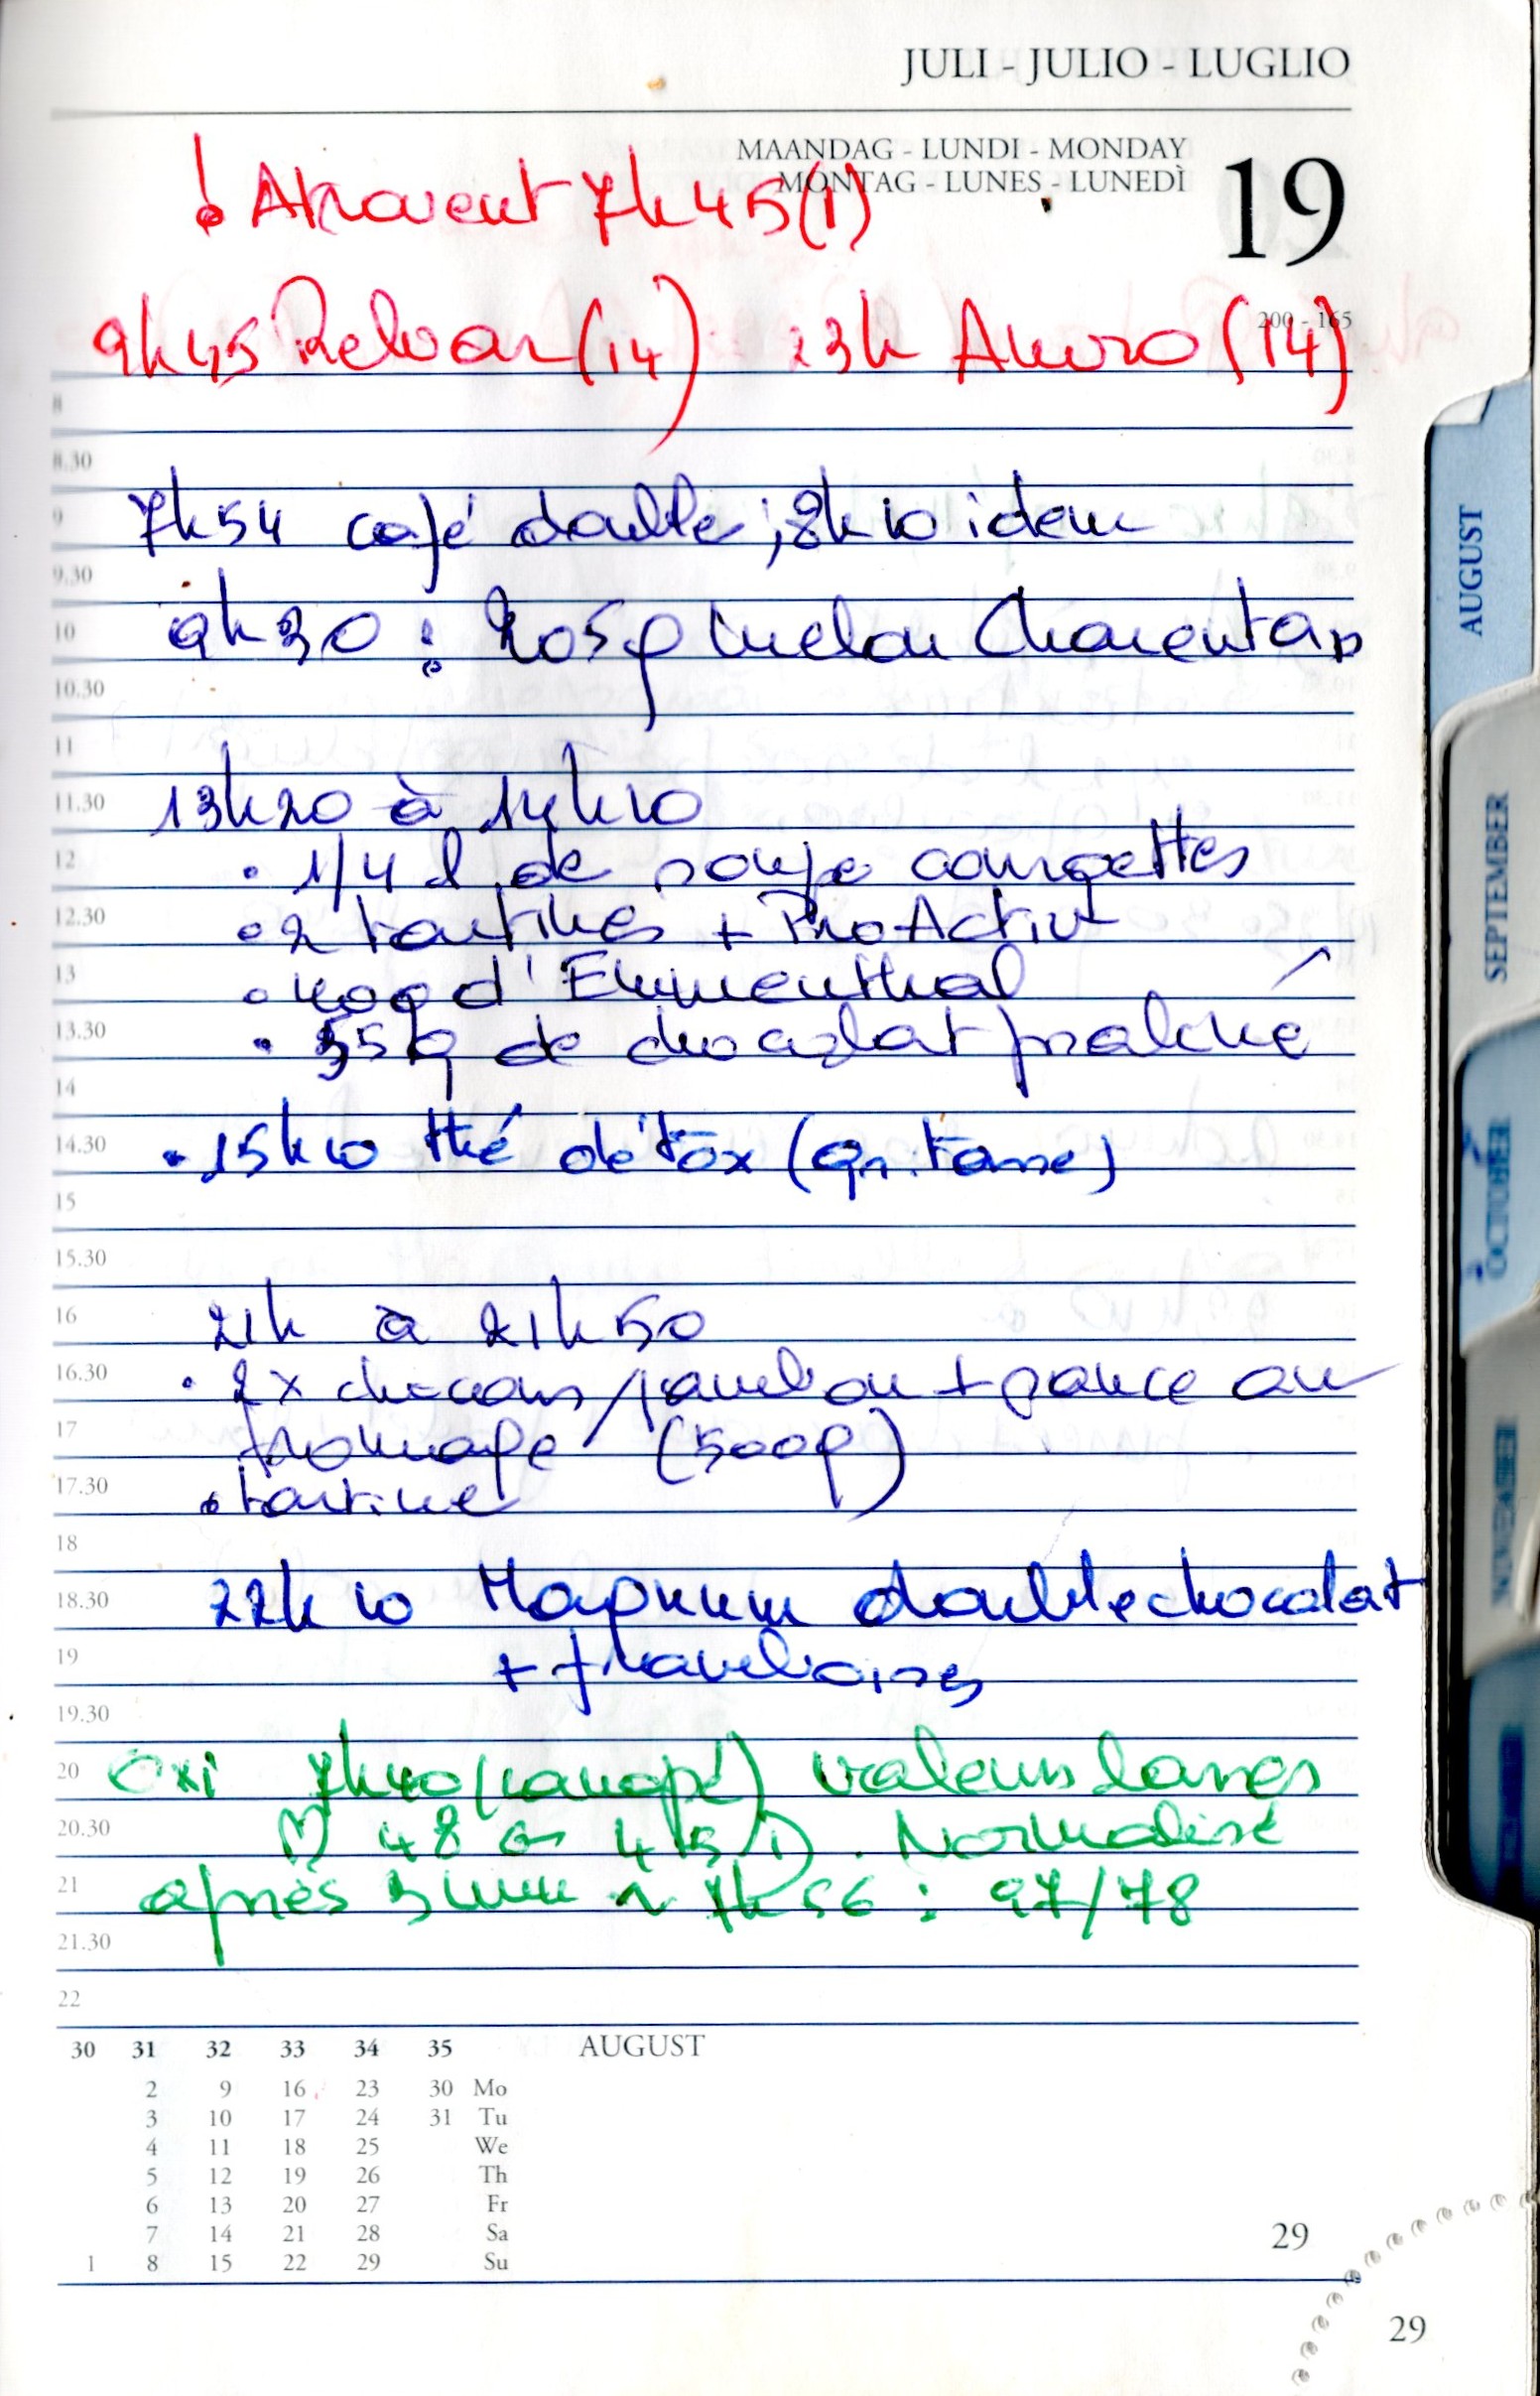 JULI - JULIO - LUGLIO
MAANDAG - LUNDI - MONDAY
MONTAG - LUNES - LUNEDÌ
19
! Atrovent 7h45 (1)
200 - 165
9h45 Relvar (14) 23h Anoro (14)
8
8.30
7h54 café double ; 8h10 idem
9
9.30
9h30 : 205g melon Charentais
10
10.30
11
13h20 à 14h10
11.30
• 1/4 l de soupe courgettes
12
• 2 tartines + Pro-Activ
12.30
• 100g d'Emmenthal
13
• 55g de chocolat praliné
13.30
14
• 15h10 thé détox (gr. tasse)
14.30
15
15.30
21h à 21h50
16
• 2x chicons/jambon + sauce au
16.30
fromage (500g)
17
• tartine
17.30
18
22h10 Magnum double chocolat
18.30
+ framboises
19
19.30
Oxi 7h40 (canapé) valeurs basses
20
48 45 Normalisé
20.30
après 5 min 7h56 : 97/78
21
21.30
22
30 31 32 33 34 35 AUGUST
2 9 16 23 30 Mo
3 10 17 24 31 Tu
4 11 18 25 We
5 12 19 26 Th
6 13 20 27 Fr
7 14 21 28 Sa
1 8 15 22 29 Su
29
29
AUGUST
SEPTEMBER
OCTOBER
NOVEMBER